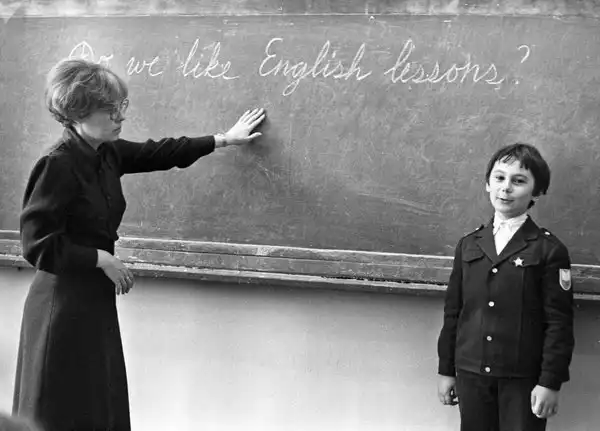 Do we like English lessons?